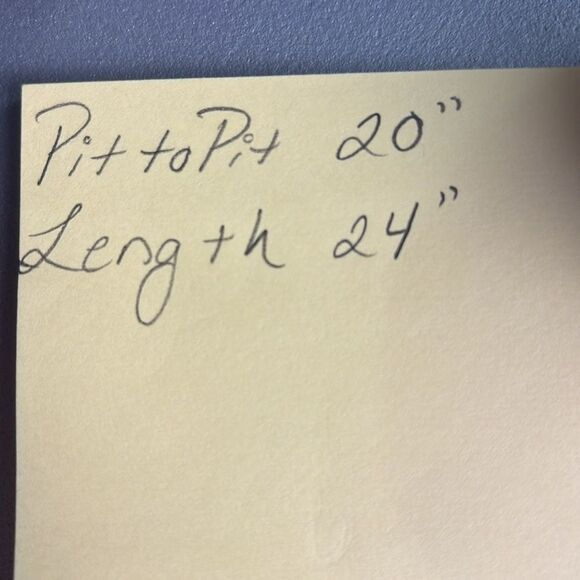 Pit to Pit 20"
Length 24"